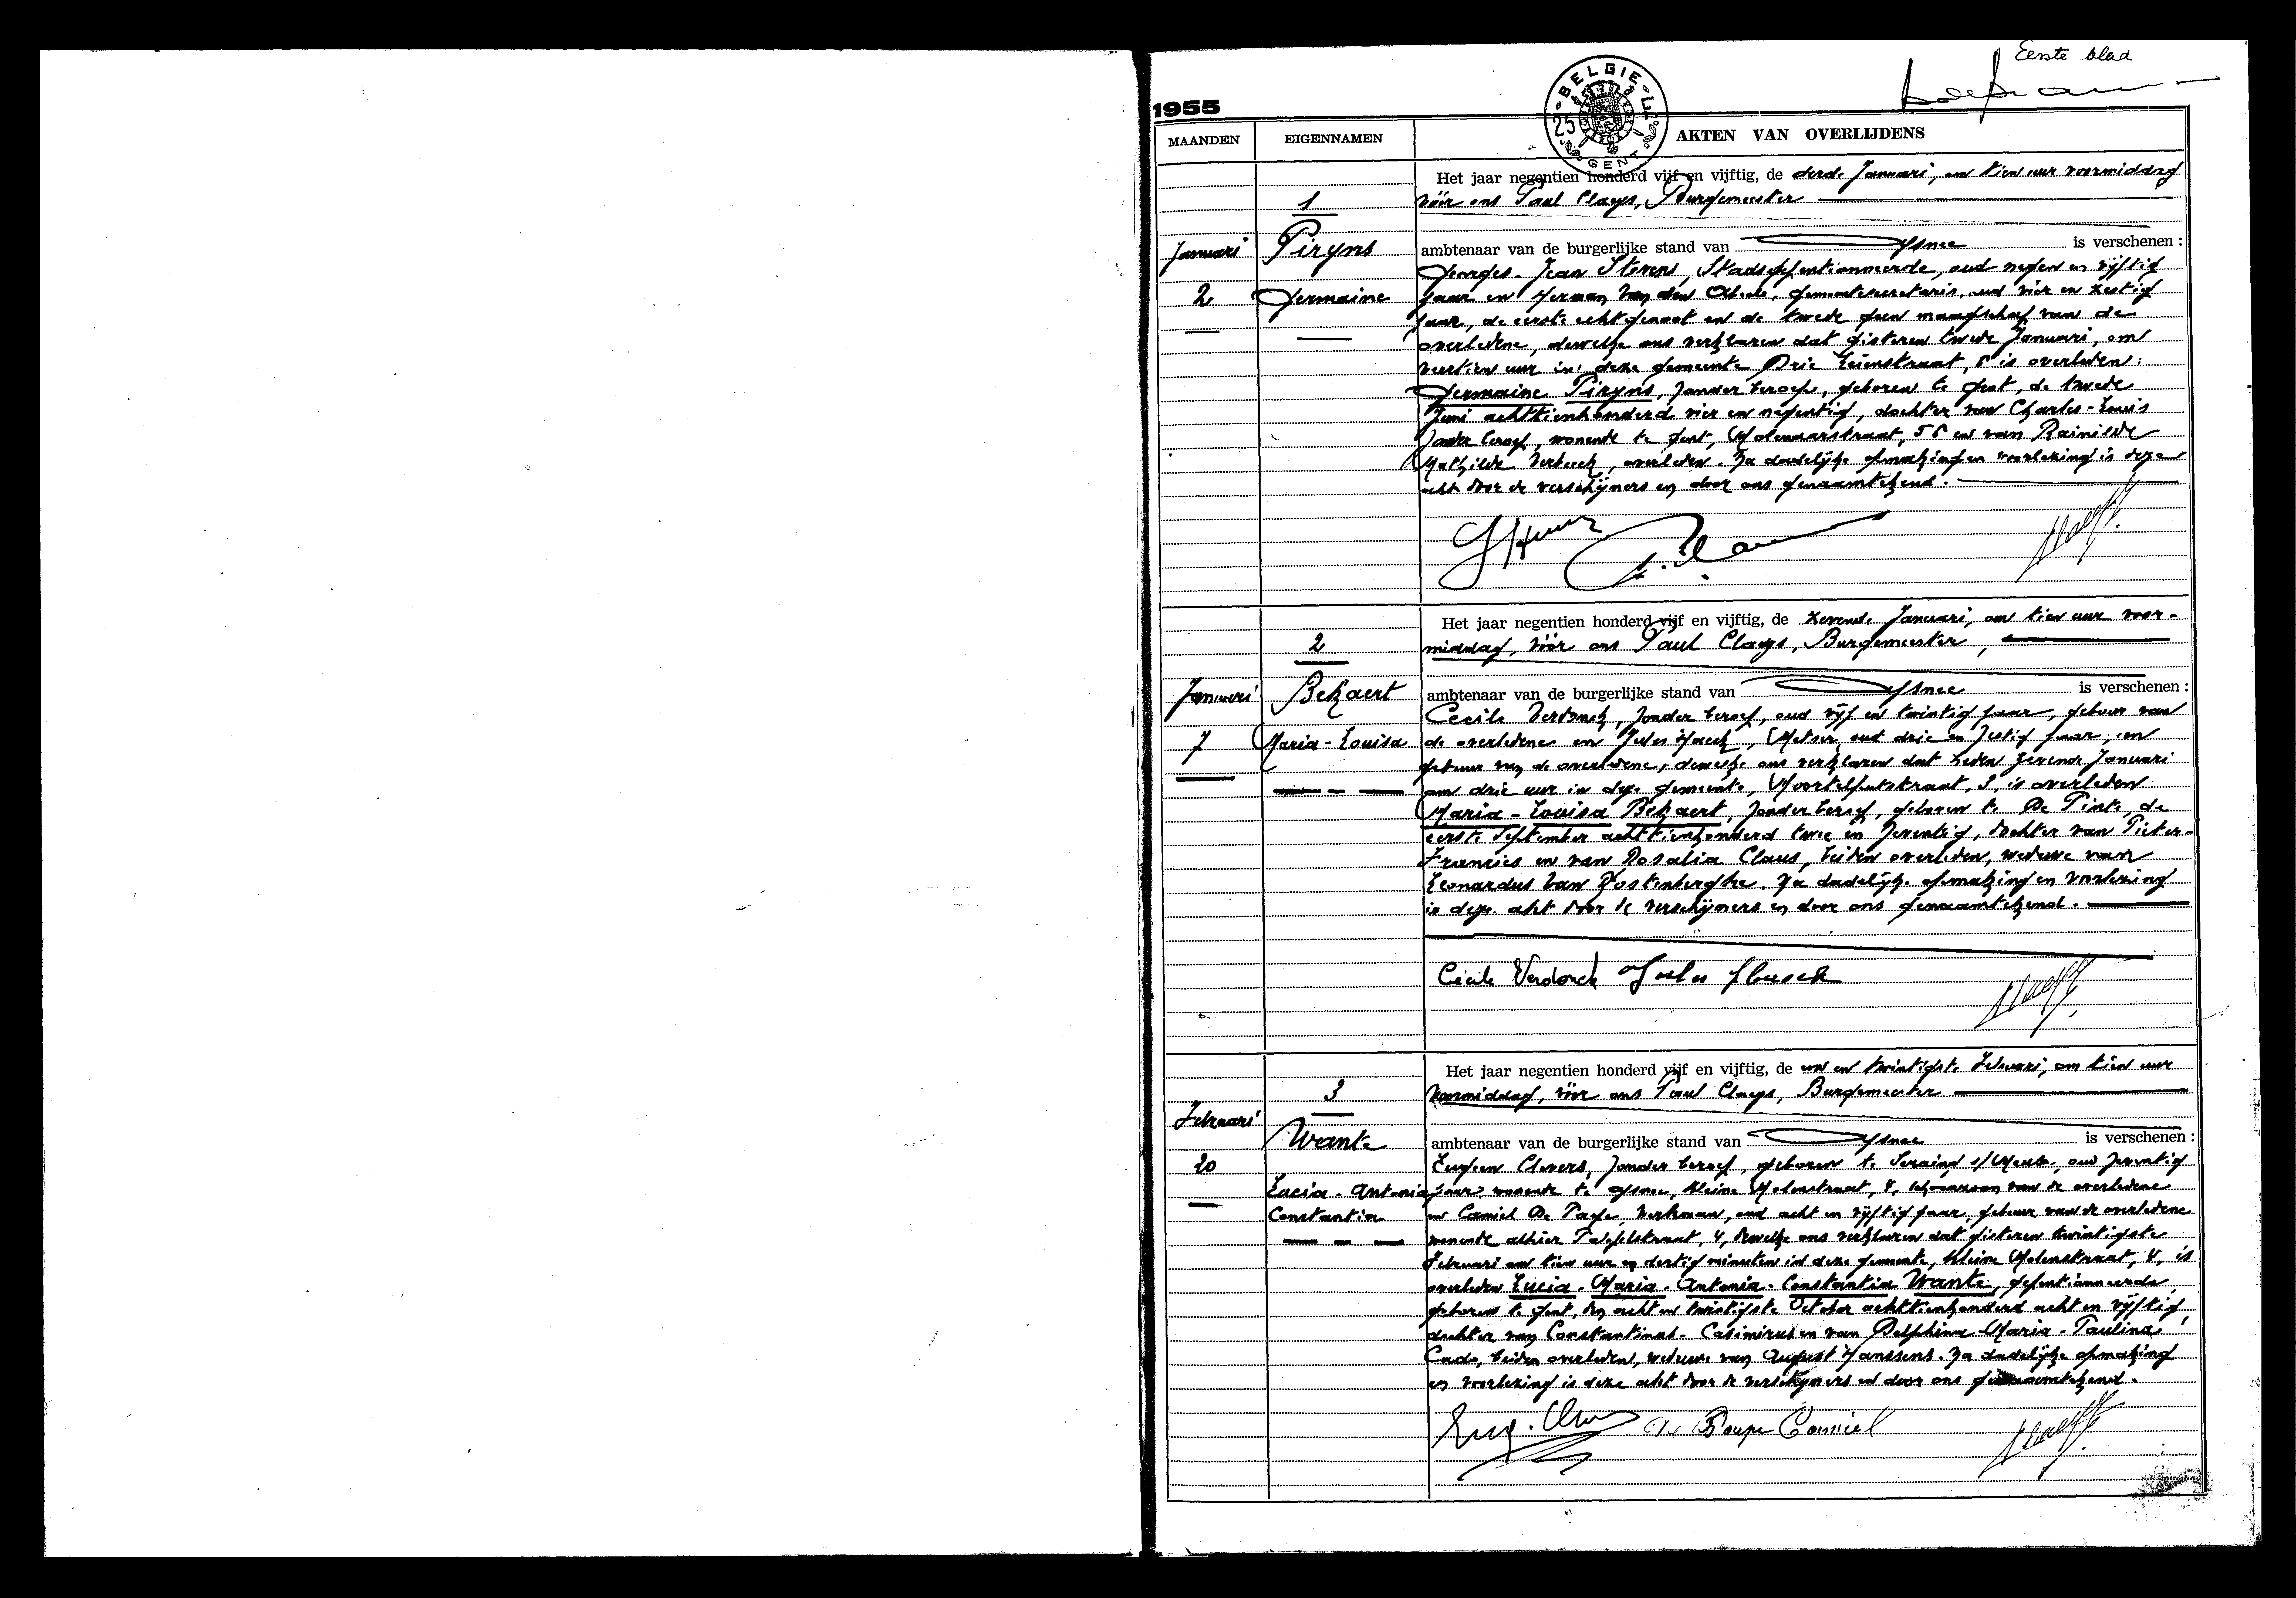 Eerste blad
1955
BELGIE
25 F
GENT
MAANDEN
EIGENNAMEN
AKTEN VAN OVERLIJDENS
1
Januari
Piryns
2
Germaine
Het jaar negentien honderd vijf en vijftig, de derde Januari, om tien uur voormiddag
vóór ons Paul Claeys, Burgemeester
ambtenaar van de burgerlijke stand van Afsnee is verschenen :
Georges-Jean Stevens, Stadsgepentionneerde, oud negen en vijftig
jaar en Herman Van den Abeele, gemeentesecretaris, oud vier en zestig
jaar, de eerste echtgenoot en de twede geen maagschap van de
overledene, dewelke ons verklaren dat gisteren twede Januari, om
veertien uur in deze gemeente Drie Leienstraat, is overleden:
Germaine Piryns, zonder beroep, geboren te Gent, de twede
Juni achttienhonderd vier en negentig, dochter van Charles-Louis
zonder beroep, wonende te Gent, Molenaarstraat, en van Rainilde
Mathilde Verbeeck, overleden. Na dadelijke opmaking en voorlezing is deze
akt door de verschijners en door ons genaamtekend.
2
Januari
Bekaert
7
Maria-Louisa
Het jaar negentien honderd vijf en vijftig, de zevende Januari, om tien uur voor-
middag, vóór ons Paul Claeys, Burgemeester,
ambtenaar van de burgerlijke stand van Afsnee is verschenen :
Cecile Verdonck, zonder beroep, oud vijf en twintig jaar, gebuur van
de overledene en Jules Haeck, Metser, oud drie en zestig jaar, en
gebuur van de overledene, dewelke ons verklaren dat heden zevende Januari
om drie uur in deze gemeente, Moortelputstraat, 3, is overleden
Maria-Louisa Bekaert, zonder beroep, geboren te De Pinte, de
eerste September achttienhonderd twee en zeventig, dochter van Pieter-
Francies en van Rosalia Claus, beiden overleden, weduwe van
Leonardus Van Oostenberghe. Na dadelijke opmaking en voorlezing
is deze akt door de verschijners en door ons genaamtekend.
Cecile Verdonck Jules Haeck
3
Februari
Wante
20
Lucia-Antonia
Constantia
Het jaar negentien honderd vijf en vijftig, de een en twintigste Februari, om tien uur
voormiddag, vóór ons Paul Claeys, Burgemeester
ambtenaar van de burgerlijke stand van Afsnee is verschenen :
Eugeen Clevers, zonder beroep, geboren te Seraing s/Meuse, oud zeventig
jaar, wonende te Afsnee, Kleine Molenstraat, 4, schoonzoon van de overledene
en Camiel De Paepe, Werkman, oud acht en vijftig jaar, gebuur van de overledene
wonende alhier 4, dewelke ons verklaren dat gisteren twintigste
Februari om tien uur en dertig minuten in deze gemeente, Kleine Molenstraat, 4, is
overleden Lucia-Maria-Antonia-Constantia Wante, gepentionneerde,
geboren te Gent, den acht en twintigste October achttienhonderd acht en vijftig,
dochter van Constantinus-Casimirus en van Delphina-Maria-Paulina
Cado, beiden overleden, weduwe van August Janssens. Na dadelijke opmaking
en voorlezing is deze akt door de verschijners en door ons genaamtekend.
De Paepe Camiel